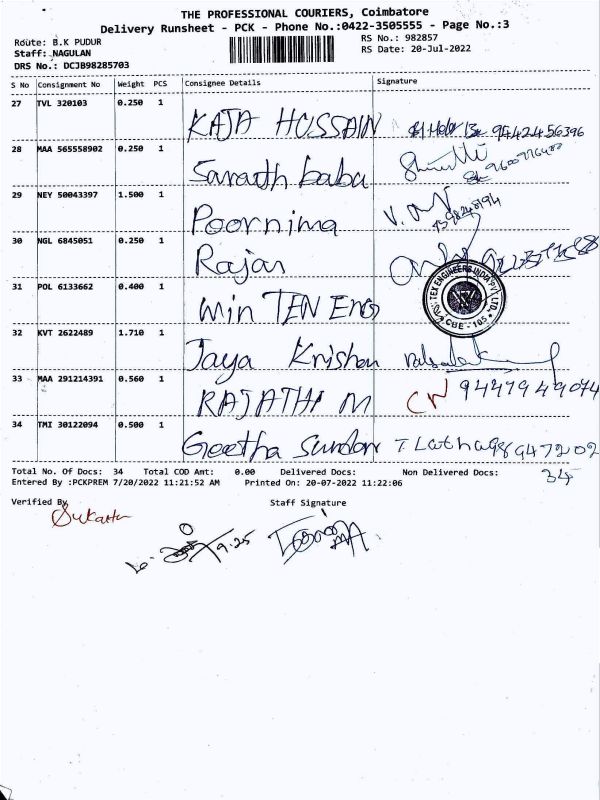 THE PROFESSIONAL COURIERS, Coimbatore
Delivery Runsheet - PCK - Phone No.:0422-3505555 - Page No.:3
Route: B.K PUDUR
RS No.: 982857
Staff: NAGULAN
RS Date: 20-Jul-2022
DRS No.: DCJB98285703
S No Consignment No Weight PCS Consignee Details Signature
27 TVL 320103 0.250 1 KAJA HUSSAIN 9442456396
28 MAA 565558902 0.250 1 Sarath babu
29 NEY 50043397 1.500 1 Poornima
30 NGL 6845051 0.250 1 Rajan
31 POL 6133662 0.400 1 Win TEN Eng
TEX ENGINEERS INDIA PVT. LTD.
CBE - 105
32 KVT 2622489 1.710 1 Jaya Krishan
33 MAA 291214391 0.560 1 RAJATHI M CN 9447949074
34 TMI 30122094 0.500 1 Geetha Sundar T. Latha 986947202
Total No. Of Docs: 34 Total COD Amt: 0.00 Delivered Docs: Non Delivered Docs:
34
Entered By :PCKPREM 7/20/2022 11:21:52 AM Printed On: 20-07-2022 11:22:06
Verified By
Staff Signature
9.25